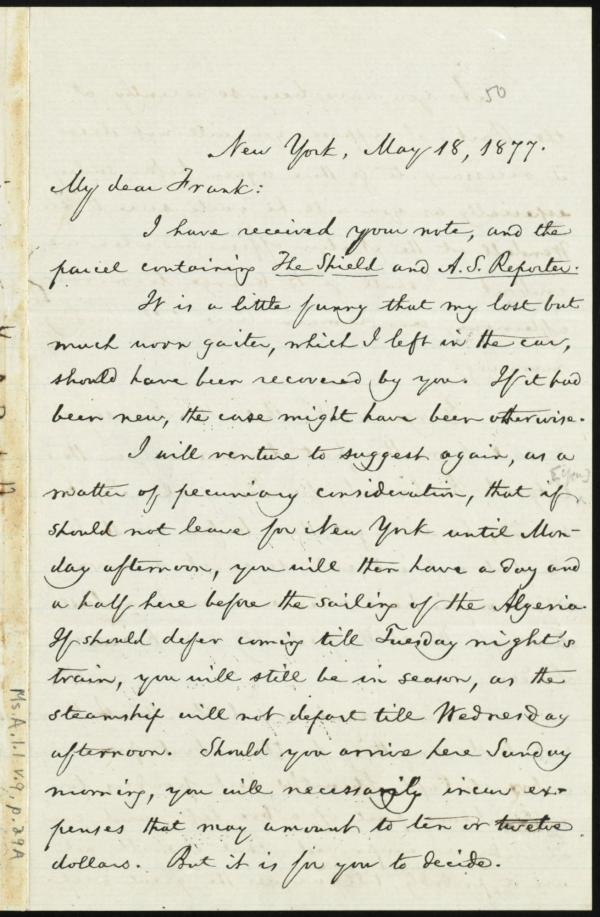 50
New York, May 18, 1877.
My dear Frank:
I have received your note, and the
parcel containing The Shield and A. S. Reporter.
It is a little funny that my lost but
much worn gaiter, which I left in the car,
should have been recovered by you. If it had
been new, the case might have been otherwise.
I will venture to suggest again, as a
matter of pecuniary consideration, that if [you]
should not leave for New York until Mon-
day afternoon, you will then have a day and
a half here before the sailing of the Algeria.
If should defer coming till Tuesday night's
train, you will still be in season, as the
steamship will not depart till Wednesday
afternoon. Should you arrive here Sunday
morning, you will necessarily incur ex-
penses that may amount to ten or twelve
dollars. But it is for you to decide.
Ms. A. 1. 1 v. 9, p. 29A